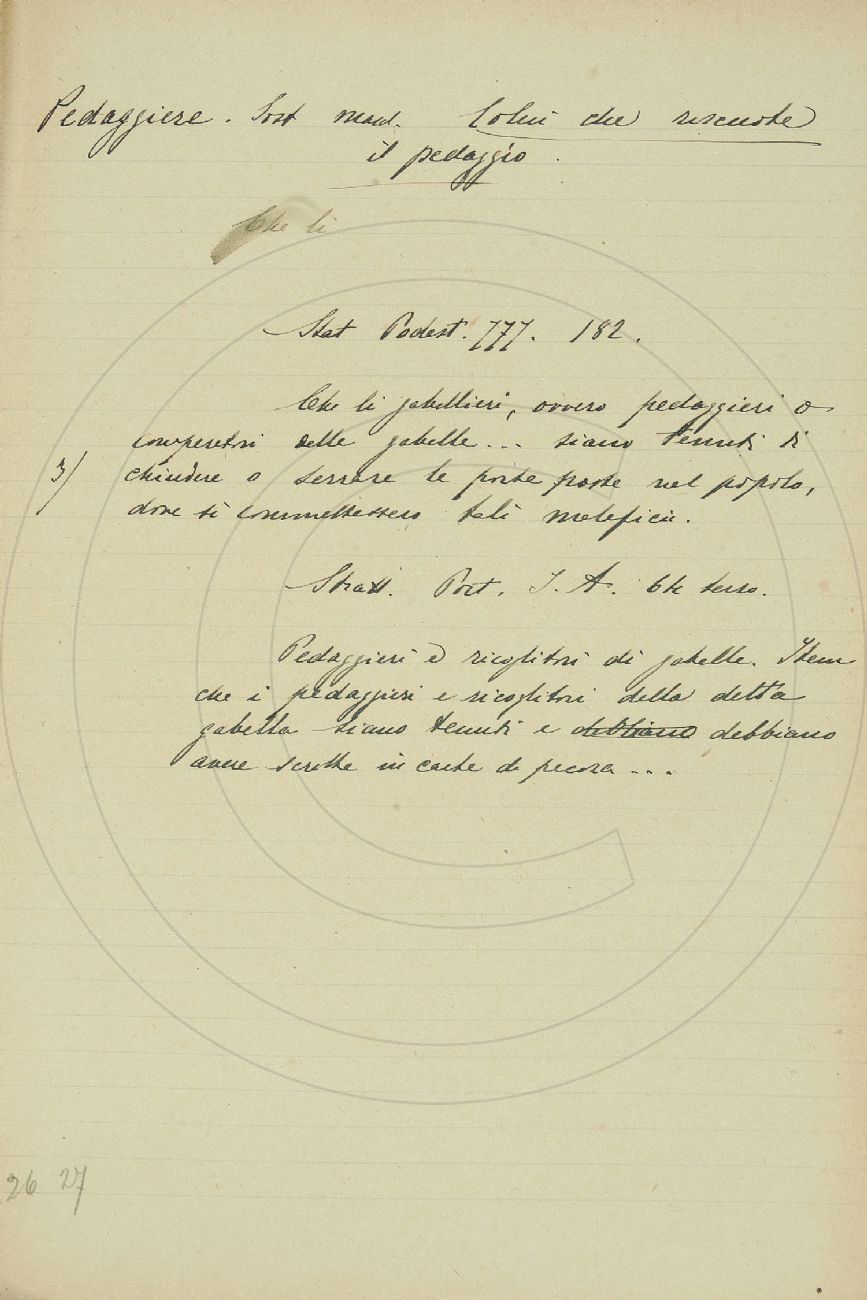 Pedaggiere. Sost masc. Colui che riscuote
il pedaggio.
Che li
Stat Podest. 777. 182.
Che li gabellieri, ovvero pedaggieri o
comperetori delle gabelle... siano tenuti di
3/ chiudere o serrare le porte poste nel popolo,
dove si commettessero tali maleficii.
Stratt. Port. I. A. 64 terso.
Pedaggieri e ricoglitori di gabelle. Item
che i pedaggieri e ricoglitori della detta
gabella siano tenuti e debbiano debbiano
avere scritte in carte di pecora...
26 27